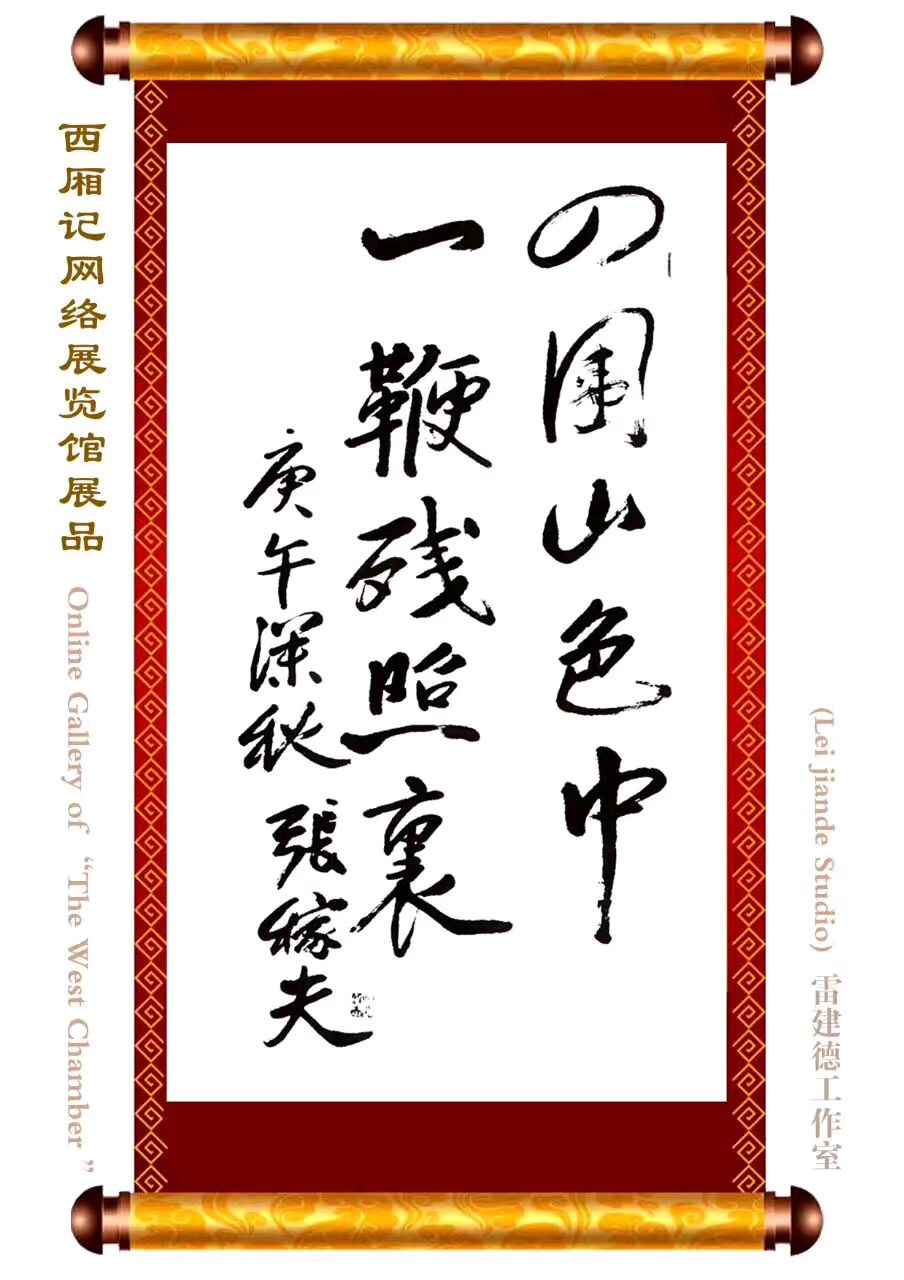 四围山色中
一鞭残照裏
庚午深秋 張稼夫
西厢记网络展览馆展品
Online Gallery of “The West Chamber”
(Lei jiande Studio) 雷建德工作室